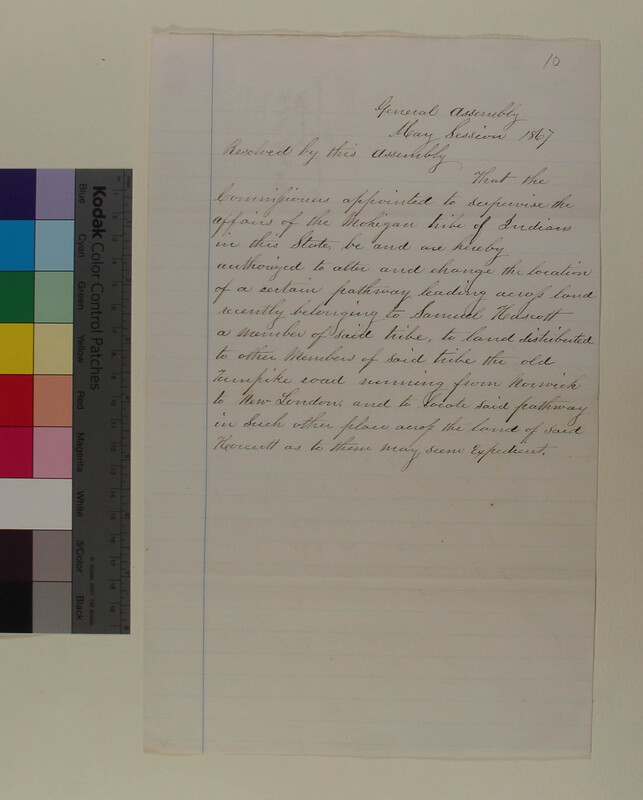 10
General Assembly
May Session 1867
Resolved by this Assembly
That the
Commissioners appointed to supervise the
affairs of the Mohigan tribe of Indians
in this State, be and are hereby
authorized to alter and change the location
of a certain pathway leading across land
recently belonging to Samuel Hascott
a member of said tribe, to land distributed
to other Members of said tribe the old
Turnpike road running from Norwich
to New London, and to locate said pathway
in such other place across the land of said
as to them may seem Expedient.
Kodak Color Control Patches
Blue
Cyan
Green
Yellow
Red
Magenta
White
3/Color
Black